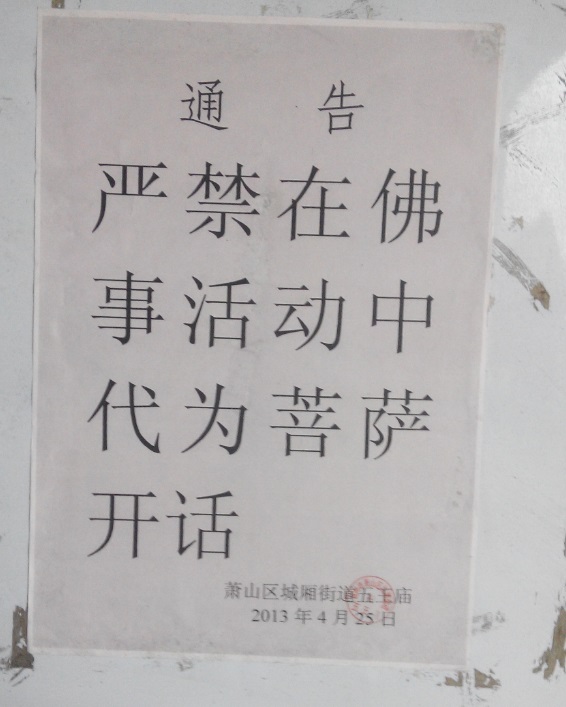 通 告
严禁在佛
事活动中
代为菩萨
开话
萧山区城厢街道五王庙
2013 年 4 月 25 日